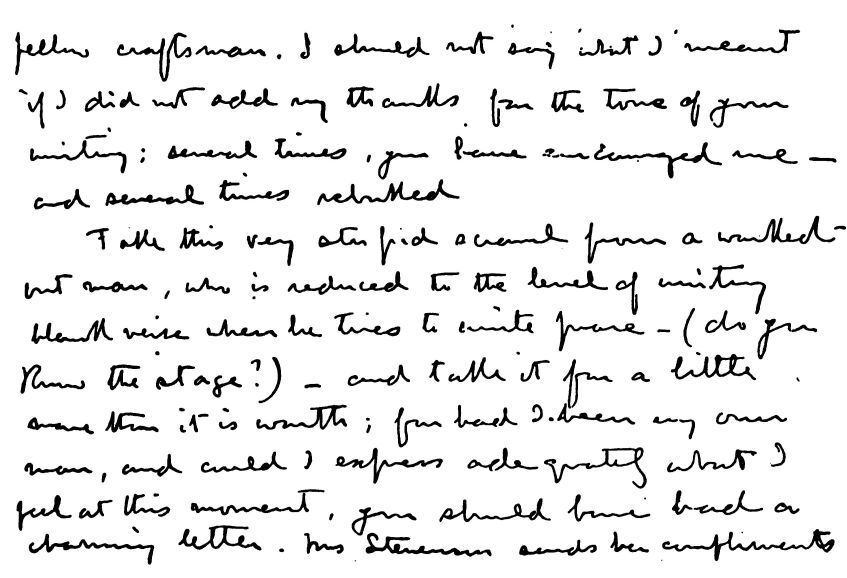 fellow craftsman. I should not say what I meant
if I did not add my thanks for the tone of your
writing; several times, you have encouraged me –
and several times rebuked
Take this very stupid scrawl from a worked-
out man, who is reduced to the level of writing
blank verse when he tries to write prose – (do you
know the stage?) – and take it for a little
more than it is worth; for had I been my own
man, and could I express adequately what I
feel at this moment, you should have had a
charming letter. Mrs Stevenson sends her compliments